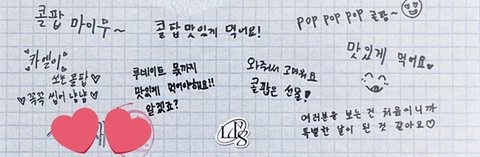 콜팝 마이무~
카엘이
쏘는 콜팝♡
♡꼭꼭 씹어 냠냠♡
콜팝 맛있게 먹어요!
루네이트 몫까지
맛있게 먹어야해요!!
알겠죠?
와주셔서 고마워요
콜팝은 선물!
POP POP POP 콜팝~
맛있게 먹어요
여러분을 보는 건 처음이니까
특별한 날이 된 것 같아요♡